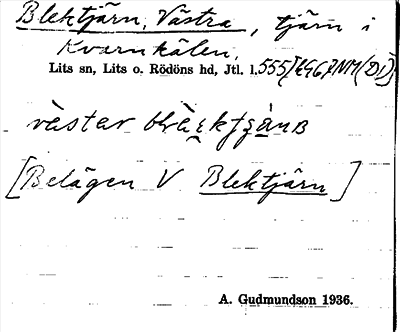 Blektjärn, Västra, tjärn i
Kvarnkälen,
Lits sn, Lits o. Rödöns hd, Jtl. l.
väster
[Belägen V Blektjärn]
A. Gudmundson 1936.